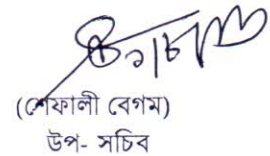 (শেফালী বেগম)
উপ- সচিব